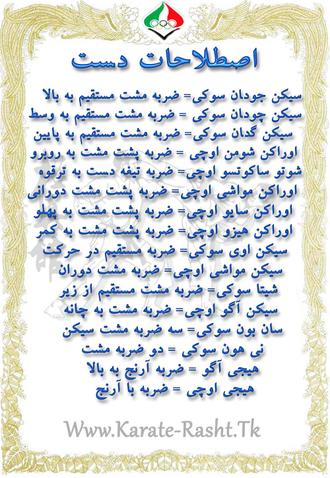 اصطلاحات دست
سیکن جودان سوکی= ضربه مشت مستقیم به بالا
سیکن چودان سوکی= ضربه مشت مستقیم به وسط
سیکن گدان سوکی= ضربه مشت مستقیم به پایین
اوراکن شومن اوچی= ضربه پشت مشت به روبرو
شوتو ساکوتسو اوچی= ضربه تیغه دست به ترقوه
اوراکن مواشی اوچی= ضربه پشت مشت دورانی
اوراکن سایو اوچی= ضربه پشت مشت به پهلو
اوراکن هیزو اوچی= ضربه پشت مشت به کمر
سیکن اوی سوکی= ضربه مستقیم در حرکت
سیکن مواشی اوچی= ضربه مشت دوران
شیتا سوکی= ضربه مشت مستقیم از زیر
سیکن آگو اوچی= ضربه مشت به چانه
سان بون سوکی= سه ضربه مشت سیکن
نی هون سوکی = دو ضربه مشت
هیجی آگو = ضربه آرنج به بالا
هیجی اوچی = ضربه با آرنج
Www.Karate-Rasht.Tk